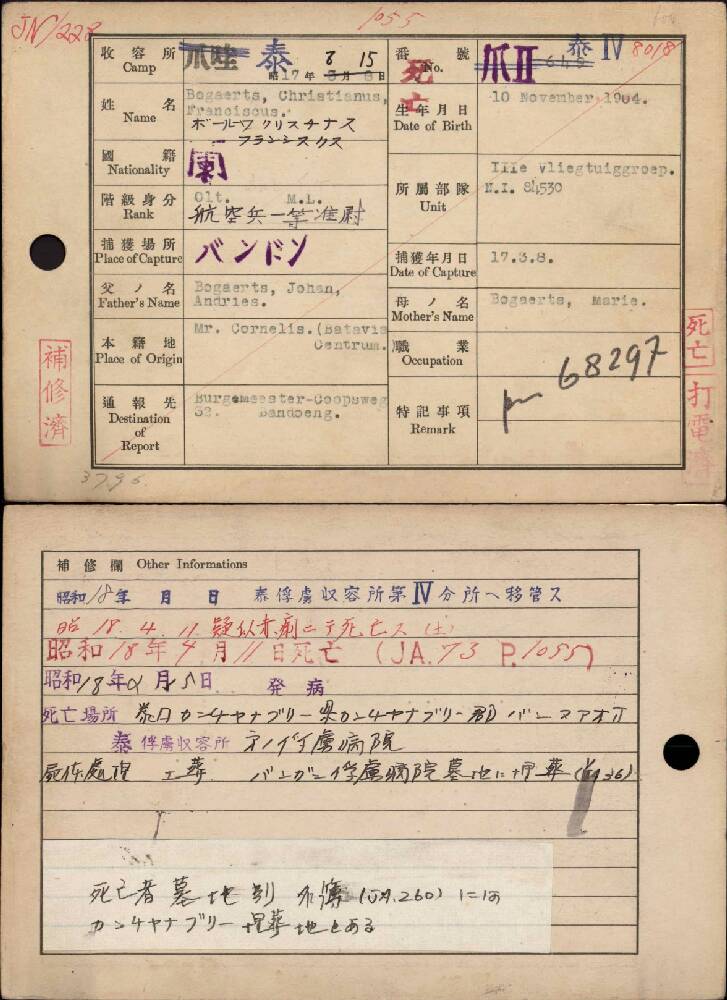 JN/228
1055
収容所 Camp
爪哇 泰
昭17年8月15日
番號 No.
爪II
泰IV
8018
死亡
姓名 Name
Bogaerts, Christianus,
Franciscus.
生年月日 Date of Birth
10 November 1904.
國籍 Nationality
蘭
階級身分 Rank
Olt. M.L.
航空兵一等准尉
所属部隊 Unit
IIIe Vliegtuiggroep.
N.I. 84530
捕獲場所 Place of Capture
バンドン
捕獲年月日 Date of Capture
17.3.8.
父ノ名 Father's Name
Bogaerts, Johan,
Andries.
母ノ名 Mother's Name
Bogaerts, Maria.
本籍地 Place of Origin
Mr. Cornelis.(Batavia
Centrum.)
職業 Occupation
通報先 Destination of Report
Burgemeester-Coopsweg
32. Bandoeng.
特記事項 Remark
68297
補修濟
死亡 打電済
3796.
補修欄 Other Informations
昭和18年 月 日 泰俘虜収容所第IV分所へ移管ス
昭18.4.11.疑似赤痢ニテ死亡ス
昭和18年4月11日死亡 (JA.73 P.1055)
昭和18年 月 日 発病
死亡場所 泰国カンチヤナブリー県カンチヤナブリー郡
泰俘虜収容所 病院
屍体処理 土葬 俘虜病院墓地に埋葬
死亡者墓地別 (JA.260)には
カンチヤナブリー埋葬地とある